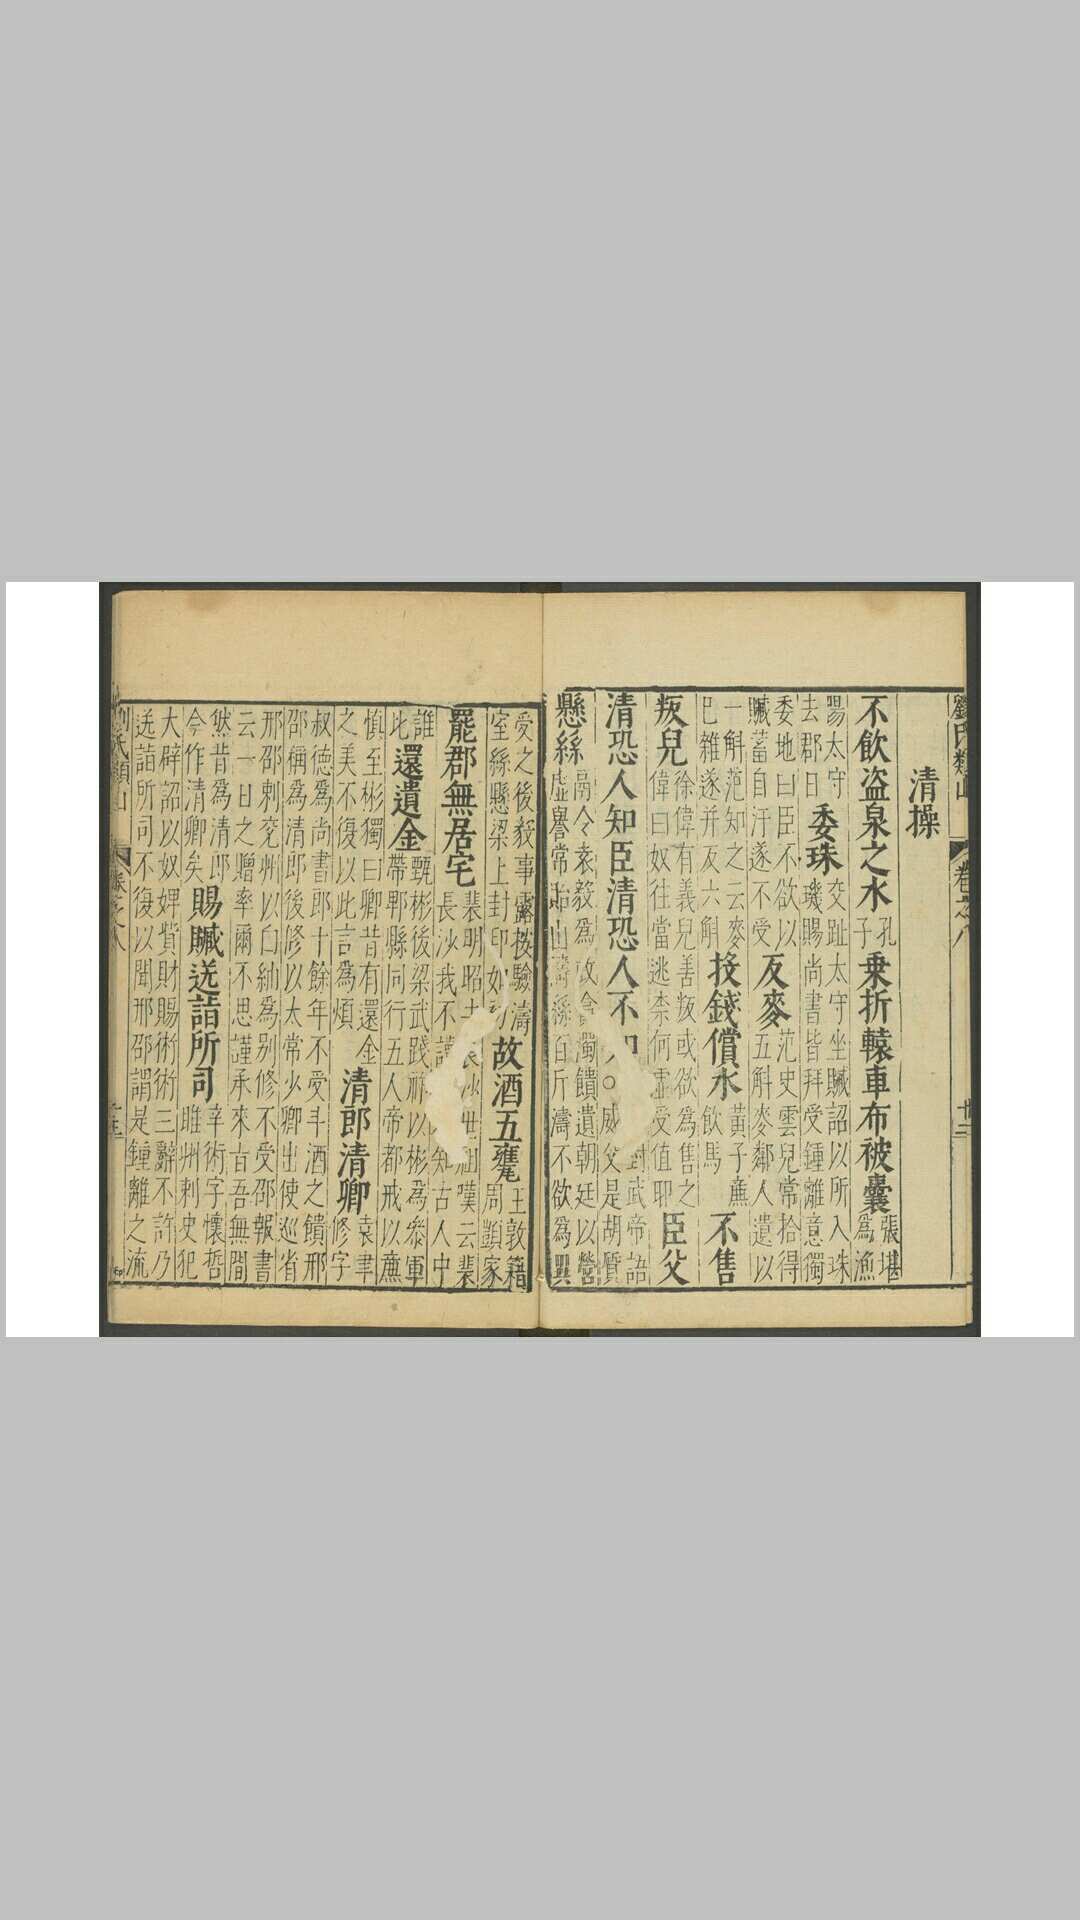 劉氏類山 卷之八 廿二
清操
不飲盜泉之水
孔
子
乘折轅車布被囊
張堪
為漁
陽太守
去郡日
委珠
交趾太守坐贓詔以所入珠
璣賜尚書皆拜受鍾離意獨
委地曰臣不欲以
贓蓄自汙遂不受
反麥
范史雲兒常拾得
五斛麥鄰人遺以
一斛范知之云麥
巳雜遂并反六斛
投錢償水
黃子㢘
飲馬
不售
叛兒
徐偉有義兒善叛或欲為售之
偉曰奴往當逃柰何虛受值耶
臣父
清恐人知臣清恐人不知○
對武帝語
威父是胡質
懸絲
鬲令袁毅為政貪濁饋遺朝廷以營
虛譽常貽山濤絲百斤濤不欲為異
受之後毅事露按驗濤
室絲懸梁上封印如初
故酒五甕
王敦籍
周顗家
罷郡無居宅
裴明昭 長沙世祖嘆云裴
長沙我不讀 知古人中
誰
比
還遺金
甄彬後梁武踐祚以彬為參軍
帶郫縣同行五人帝都戒以㢘
慎至彬獨曰卿昔有還金
之美不復以此言為煩
清郎清卿
袁聿
修字
叔德為尚書郎十餘年不受斗酒之饋邢
邵稱為清郎後修以太常少卿出使巡省
邢邵刺兗州以白紬為别修不受邵報書
云一日之贈率爾不思謹承來旨吾無間
然昔為清郎
今作清卿矣
賜贓送詣所司
辛術字懷哲
睢州刺史犯
大辟詔以奴婢貲財賜術術三辭不許乃
送詣所司不復以聞邢邵謂是鍾離之流
劉氏類山 卷之八